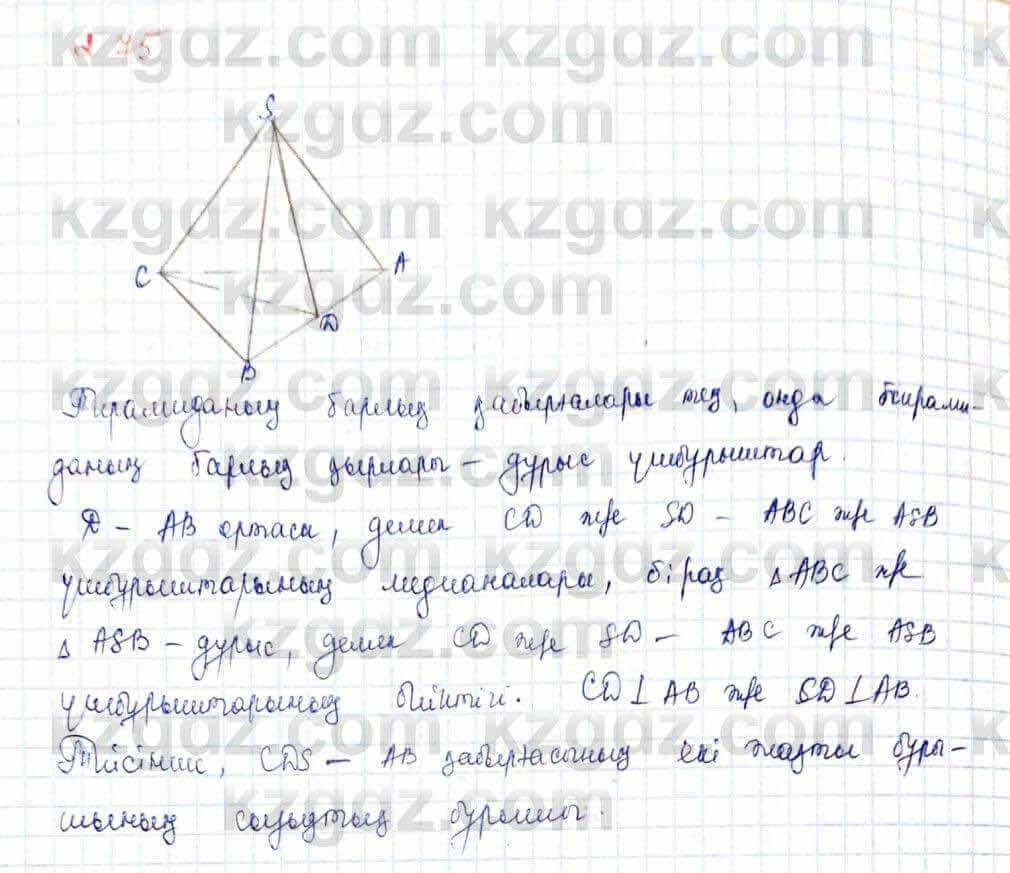 275
S
C
A
D
B
Пирамиданың барлық қабырғалары тең, онда пирами-
даның барлық қырлары – дұрыс үшбұрыштар.
D – AB ортасы, демек CD және SD – ABC және ASB
үшбұрыштарының медианалары, бірақ △ABC және
△ ASB – дұрыс, демек CD және SD – ABC және ASB
үшбұрыштарының биіктігі. CD⊥AB және SD⊥AB.
Тиісінше, CDS – AB қабырғасының екі жақты бұры-
шының сызықтық бұрышы.
kzgdz.com